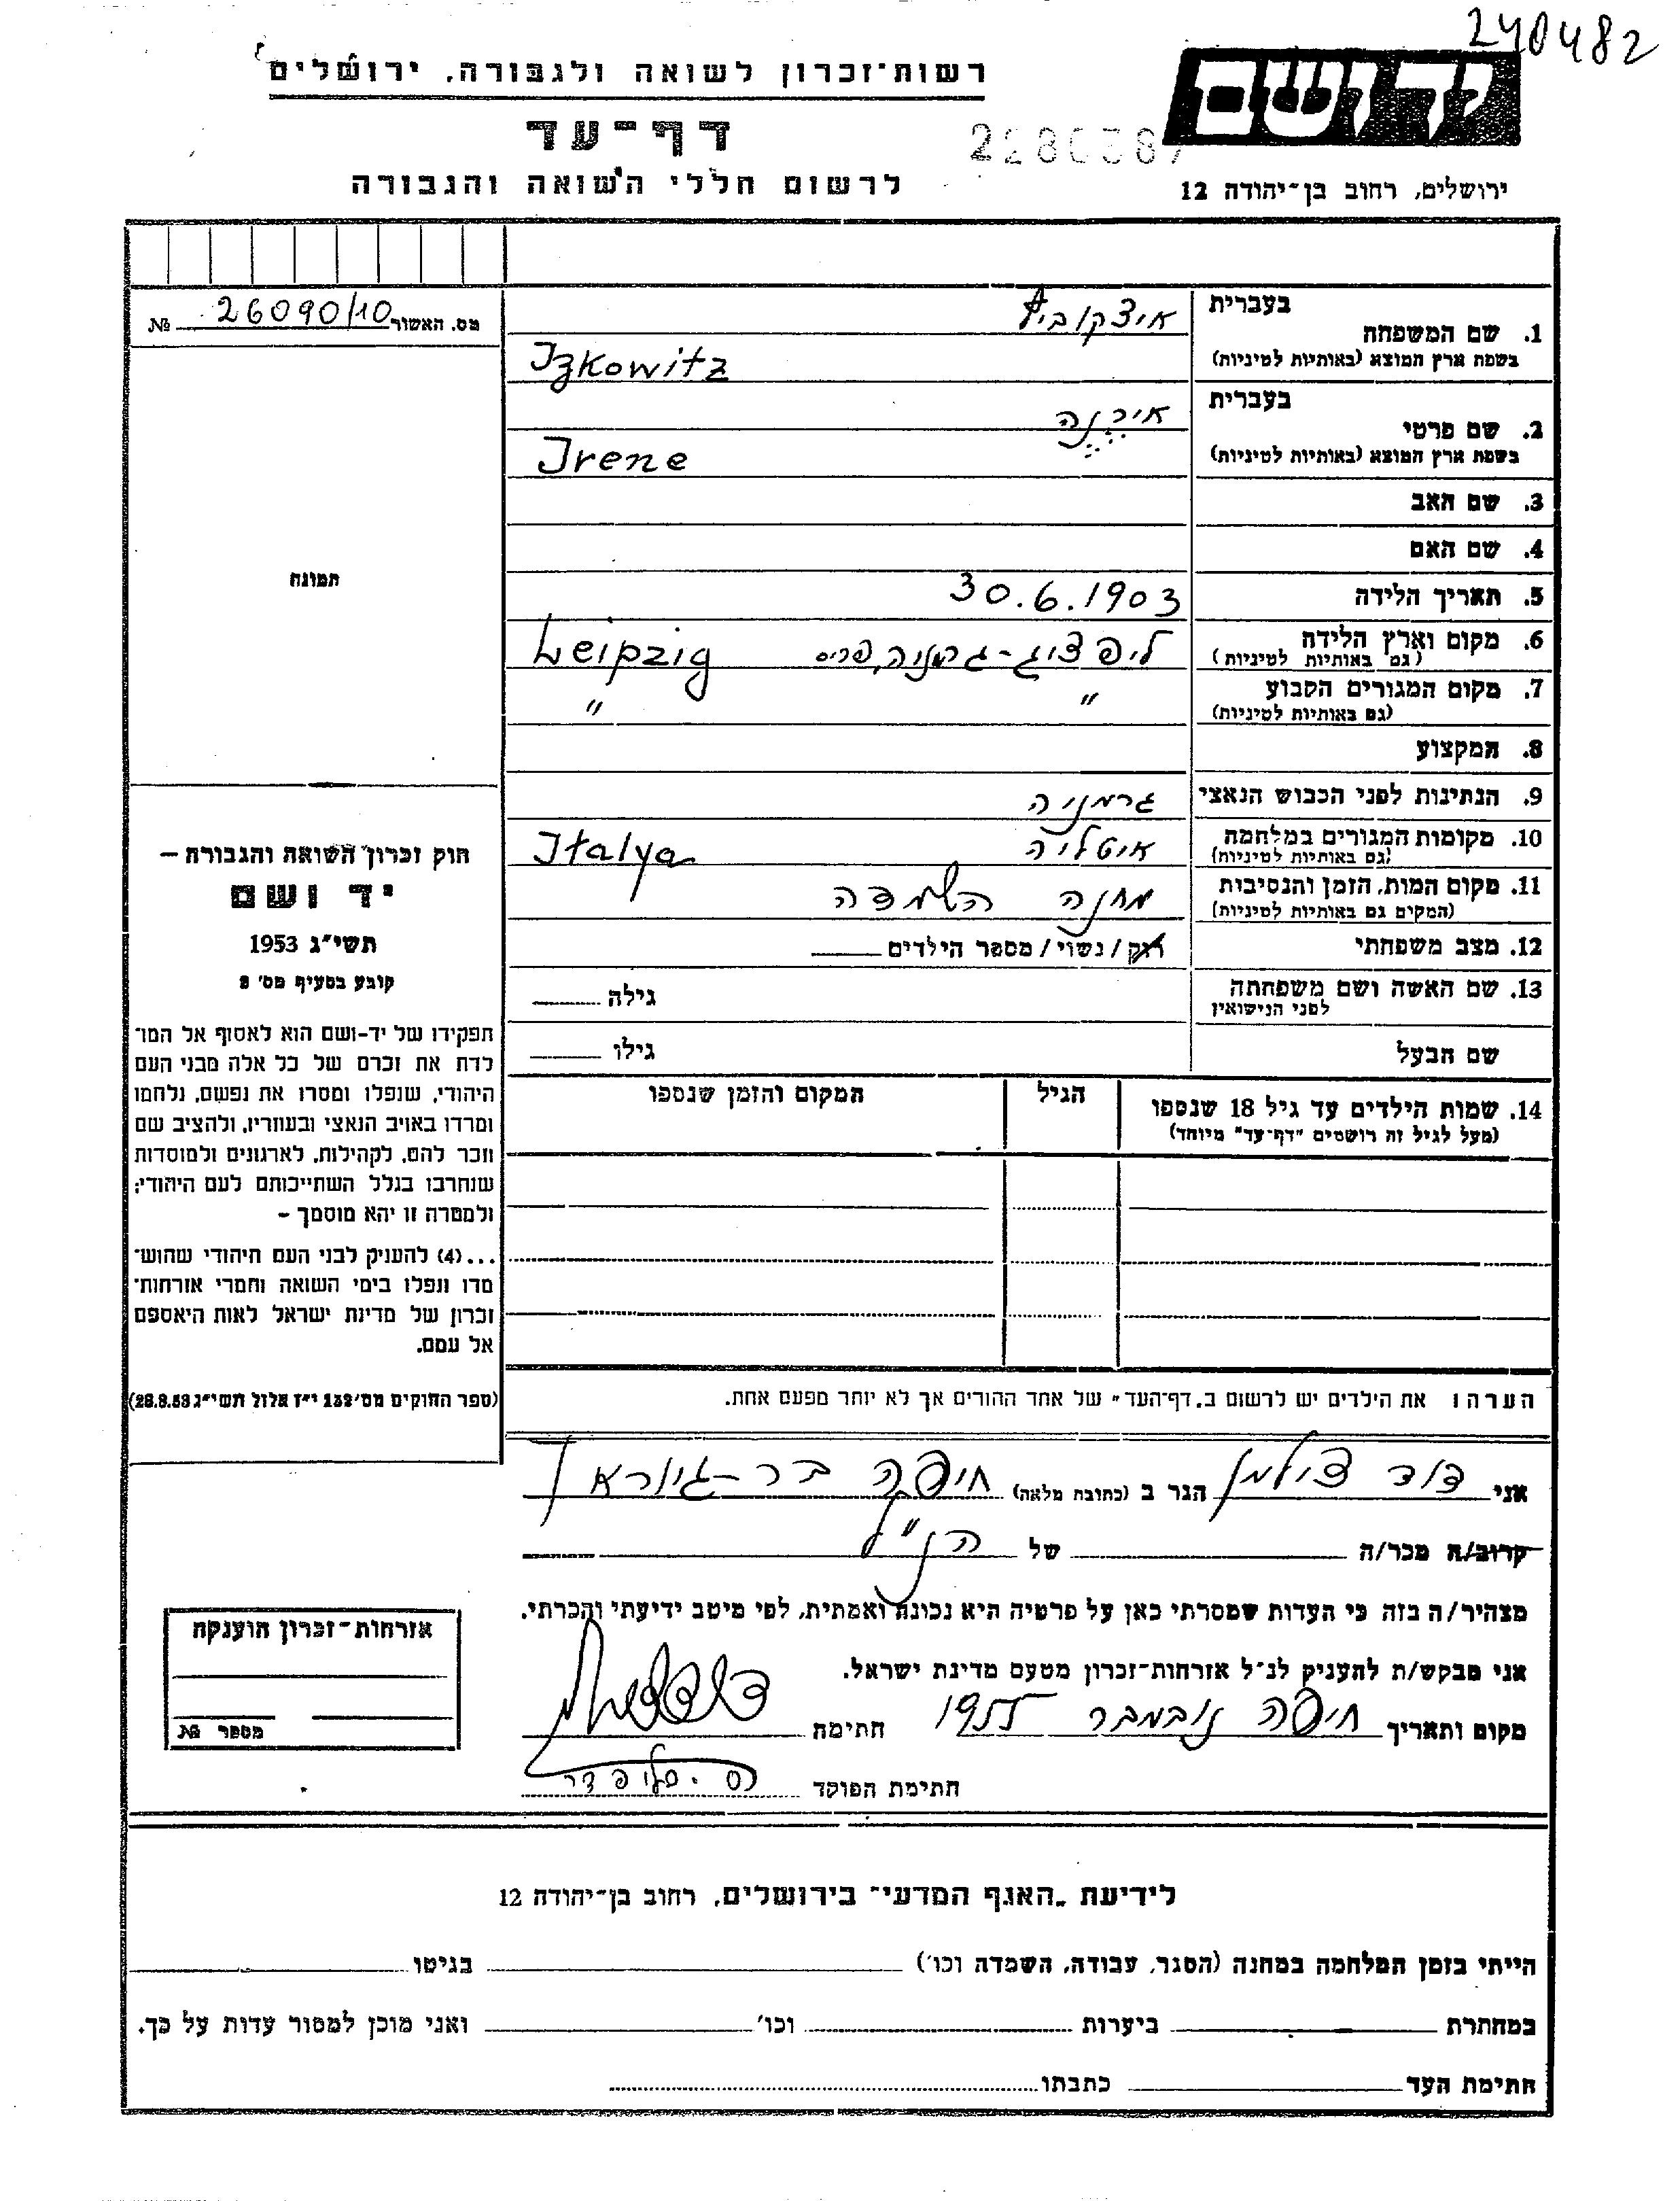 240482
רשות־זכרון לשואה ולגבורה, ירושלים
יד ושם
דף־עד
לרשום חללי השואה והגבורה
ירושלים, רחוב בן־יהודה 12
מס. האשור 26090/10 №
תמונה
חוק זכרון השואה והגבורה –
יד ושם
תשי״ג 1953
קובע בסעיף מס׳ 2
תפקידו של יד-ושם הוא לאסוף אל המו־
לדת את זכרם של כל אלה מבני העם
היהודי, שנפלו ומסרו את נפשם, נלחמו
ומרדו באויב הנאצי ובעוזריו, ולהציב שם
וזכר להם, לקהילות, לארגונים ולמוסדות
שנחרבו בגלל השתייכותם לעם היהודי;
ולמטרה זו יהא מוסמך –
...(4) להעניק לבני העם היהודי שהוש־
מדו ונפלו בימי השואה והמרי אזרחות־
זכרון של מדינת ישראל לאות היאספם
אל עמם.
(ספר החוקים מס׳ 132 י״ז אלול תשי״ג 28.8.53)
בעברית איצקוביץ
1. שם המשפחה
בשפת ארץ המוצא (באותיות לטיניות) Izkowitz
בעברית אירנה
2. שם פרטי
בשפת ארץ המוצא (באותיות לטיניות) Irene
3. שם האב
4. שם האם
5. תאריך הלידה 30.6.1903
6. מקום וארץ הלידה ליפציג-גרמניה, Leipzig
(גם באותיות לטיניות)
7. מקום המגורים הקבוע " "
(גם באותיות לטיניות)
8. המקצוע
9. הנתינות לפני הכבוש הנאצי גרמניה
10. מקומות המגורים במלחמה איטליה Italya
(גם באותיות לטיניות)
11. מקום המות, הזמן והנסיבות מחנה השמדה
(המקום גם באותיות לטיניות)
12. מצב משפחתי רוק/נשוי/מספר הילדים
13. שם האשה ושם משפחתה גילה
לפני הנישואין
שם הבעל גילו
14. שמות הילדים עד גיל 18 שנספו הגיל המקום והזמן שנספו
(מעל לגיל זה רושמים "דף־עד" מיוחד)
הערה: את הילדים יש לרשום ב„דף־העד״ של אחד ההורים אך לא יותר מפעם אחת.
אני דוד צילמן הגר ב (כתובת מלאה) חיפה בר-גיורא 7
קרוב/ה מכר/ה של הנ"ל
מצהיר/ה בזה כי העדות שמסרתי כאן על פרטיה היא נכונה ואמתית, לפי מיטב ידיעתי והכרתי.
אני מבקש/ת להעניק לנ״ל אזרחות־זכרון מטעם מדינת ישראל.
מקום ותאריך חיפה נובמבר 1955 חתימה
חתימת הפוקד
אזרחות־זכרון הוענקה
מספר №
לידיעת „האגף המדעי״ בירושלים, רחוב בן־יהודה 12
הייתי בזמן המלחמה במחנה (הסגר, עבודה, השמדה וכו׳) בגיטו
במחתרת ביערות וכו׳ ואני מוכן למסור עדות על כך.
חתימת העד כתבתו